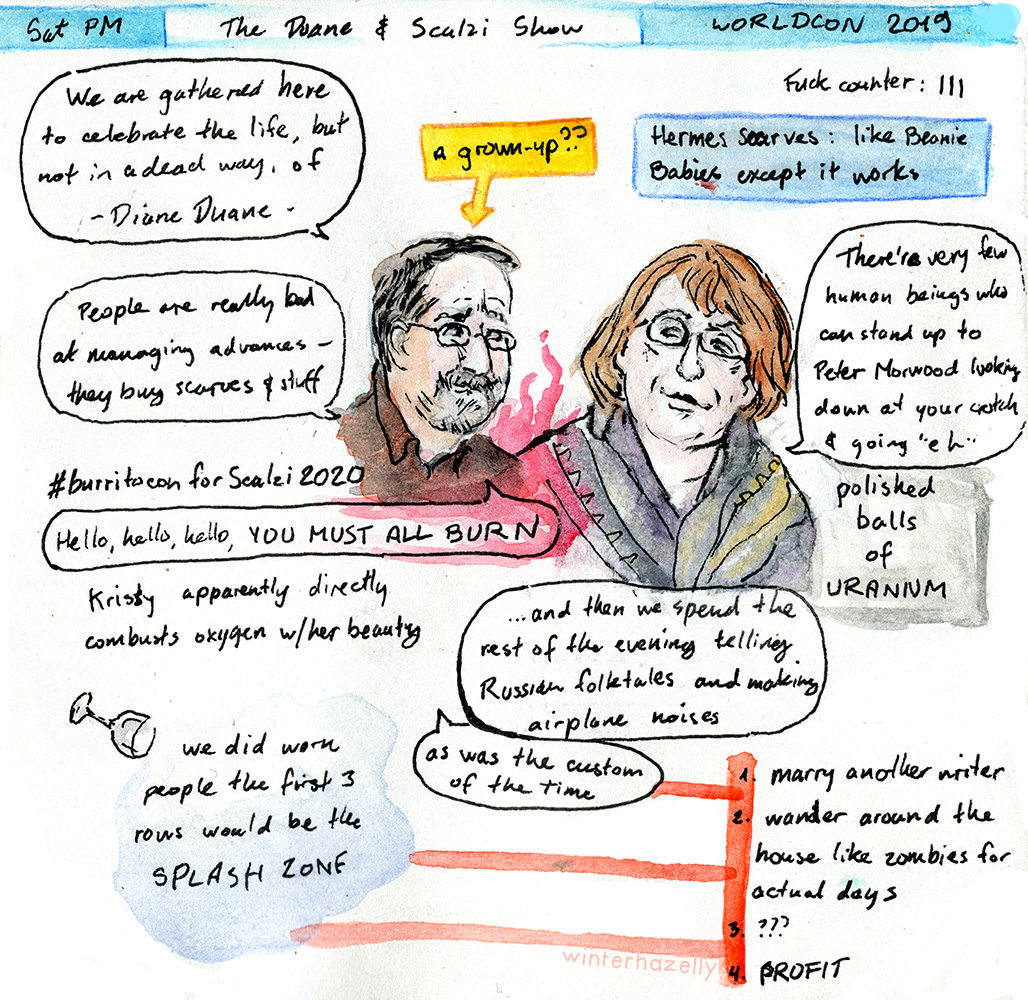 Sat PM
The Duane & Scalzi Show
WORLDCON 2019
Fuck counter: |||
We are gathered here
to celebrate the life, but
not in a dead way, of
- Diane Duane -
a grown-up??
Hermes Scarves: like Beanie
Babies except it works
People are really bad
at managing advances -
they buy scarves & stuff
There're very few
human beings who
can stand up to
Peter Morwood looking
down at your crotch
& going "eh"
#burritocon for Scalzi 2020
polished
balls
of
URANIUM
Hello, hello, hello, YOU MUST ALL BURN
Kristy apparently directly
combusts oxygen w/her beauty
...and then we spend the
rest of the evening telling
Russian folktales and making
airplane noises
as was the custom
of the time
we did worn
people the first 3
rows would be the
SPLASH ZONE
1. marry another writer
2. wander around the
house like zombies for
actual days
3. ???
4. PROFIT
winterhazelly